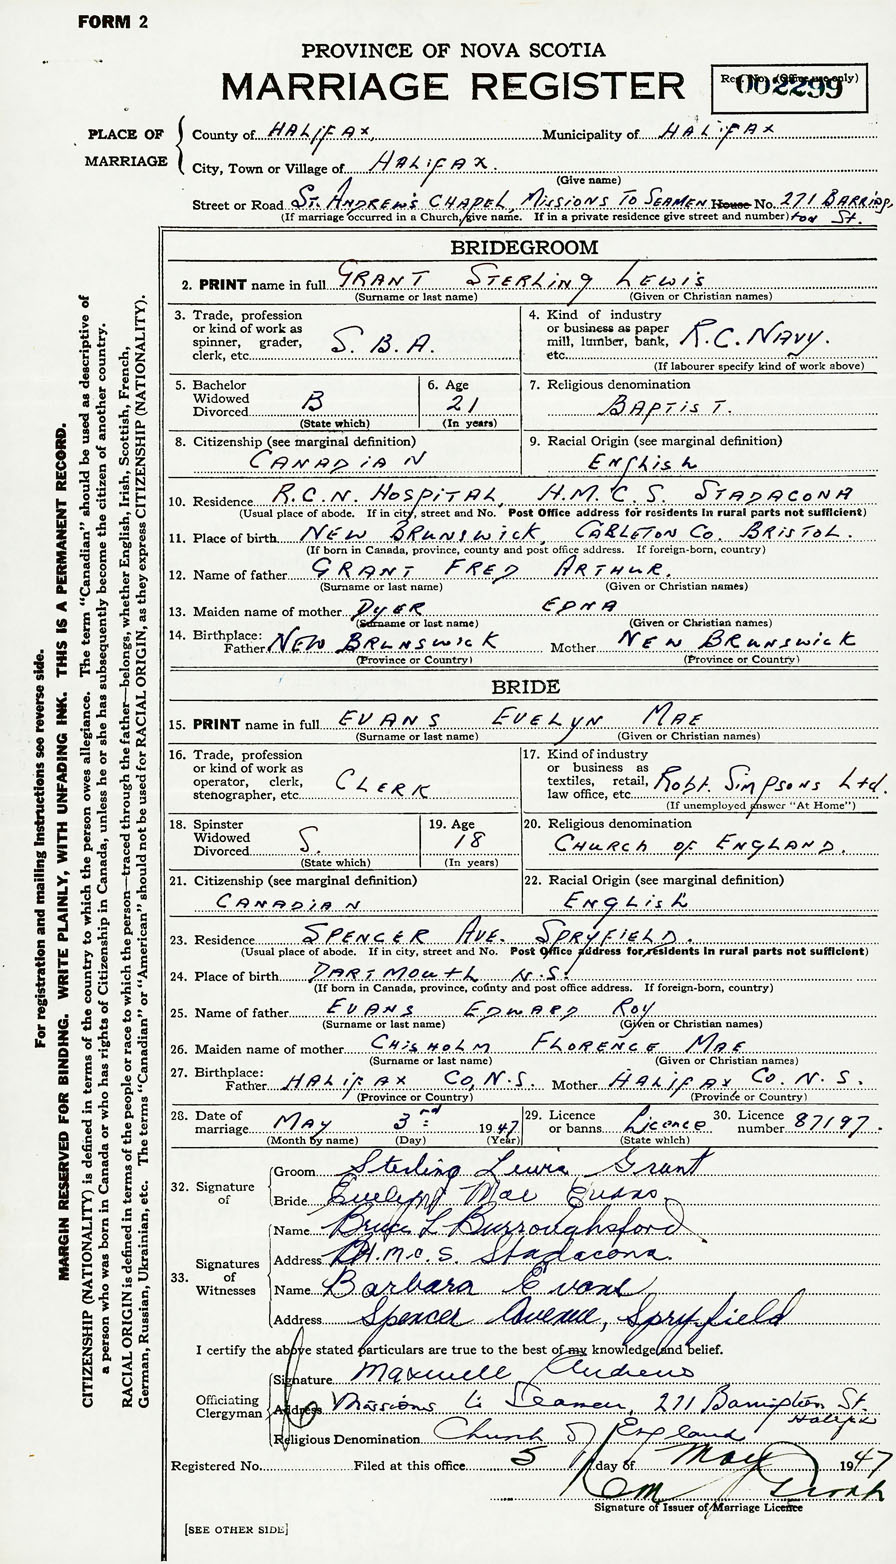 FORM 2
PROVINCE OF NOVA SCOTIA
MARRIAGE REGISTER
Reg. No. (Office use only)
002299
PLACE OF MARRIAGE
County of HALIFAX, Municipality of HALIFAX
City, Town or Village of HALIFAX.
(Give name)
Street or Road ST. ANDREW'S CHAPEL, MISSIONS TO SEAMEN House No. 271 BARRING
(If marriage occurred in a Church, give name. If in a private residence give street and number) ton St.
BRIDEGROOM
2. PRINT name in full GRANT STERLING LEWIS
(Surname or last name) (Given or Christian names)
3. Trade, profession
or kind of work as
spinner, grader,
clerk, etc. S. B. A.
4. Kind of industry
or business as paper
mill, lumber, bank,
etc. R.C. NAVY.
(If labourer specify kind of work above)
5. Bachelor
Widowed
Divorced B
(State which)
6. Age
21
(In years)
7. Religious denomination
BAPTIST.
8. Citizenship (see marginal definition)
CANADIAN
9. Racial Origin (see marginal definition)
ENGLISH
10. Residence R.C.N. HOSPITAL, H.M.C.S. STADACONA
(Usual place of abode. If in city, street and No. Post Office address for residents in rural parts not sufficient)
11. Place of birth NEW BRUNSWICK, CARLETON CO. BRISTOL.
(If born in Canada, province, county and post office address. If foreign-born, country)
12. Name of father GRANT FRED ARTHUR.
(Surname or last name) (Given or Christian names)
13. Maiden name of mother DYER EDNA
(Surname or last name) (Given or Christian names)
14. Birthplace:
Father NEW BRUNSWICK Mother NEW BRUNSWICK
(Province or Country) (Province or Country)
BRIDE
15. PRINT name in full EVANS EVELYN MAE
(Surname or last name) (Given or Christian names)
16. Trade, profession
or kind of work as
operator, clerk,
stenographer, etc. CLERK
17. Kind of industry
or business as
textiles, retail,
law office, etc. Robt. Simpsons Ltd.
(If unemployed answer "At Home")
18. Spinster
Widowed
Divorced S.
(State which)
19. Age
18
(In years)
20. Religious denomination
CHURCH OF ENGLAND.
21. Citizenship (see marginal definition)
CANADIAN
22. Racial Origin (see marginal definition)
ENGLISH
23. Residence SPENCER AVE. SPRYFIELD.
(Usual place of abode. If in city, street and No. Post Office address for residents in rural parts not sufficient)
24. Place of birth DARTMOUTH N.S.
(If born in Canada, province, county and post office address. If foreign-born, country)
25. Name of father EVANS EDWARD ROY
(Surname or last name) (Given or Christian names)
26. Maiden name of mother CHISHOLM FLORENCE MAE
(Surname or last name) (Given or Christian names)
27. Birthplace:
Father HALIFAX CO, N.S. Mother HALIFAX CO. N.S.
(Province or Country) (Province or Country)
28. Date of
marriage MAY 3rd 1947
(Month by name) (Day) (Year)
29. Licence
or banns Licence
(State which)
30. Licence
number 87197.
32. Signature of
Groom Sterling Lewis Grant
Bride Evelyn Mae Evans
33. Signatures of Witnesses
Name Bruce L Burroughsford
Address H.M.C.S. Stadacona
Name Barbara Evans
Address Spencer Avenue, Spryfield
I certify the above stated particulars are true to the best of my knowledge and belief.
Officiating Clergyman
Signature Maxwell Andrews
Address Missions to Seamen, 271 Barrington St.
Halifax
Religious Denomination Church of England
Registered No. Filed at this office 5 day of May 1947
Signature of Issuer of Marriage Licence
[SEE OTHER SIDE]
For registration and mailing instructions see reverse side.
MARGIN RESERVED FOR BINDING. WRITE PLAINLY, WITH UNFADING INK. THIS IS A PERMANENT RECORD.
CITIZENSHIP (NATIONALITY) is defined in terms of the country to which the person owes allegiance. The term "Canadian" should be used as descriptive of
a person who was born in Canada or who has rights of Citizenship in Canada, unless he or she has subsequently become the citizen of another country.
RACIAL ORIGIN is defined in terms of the people or race to which the person—traced through the father—belongs, whether English, Irish, Scottish, French,
German, Russian, Ukrainian, etc. The terms "Canadian" or "American" should not be used for RACIAL ORIGIN, as they express CITIZENSHIP (NATIONALITY).